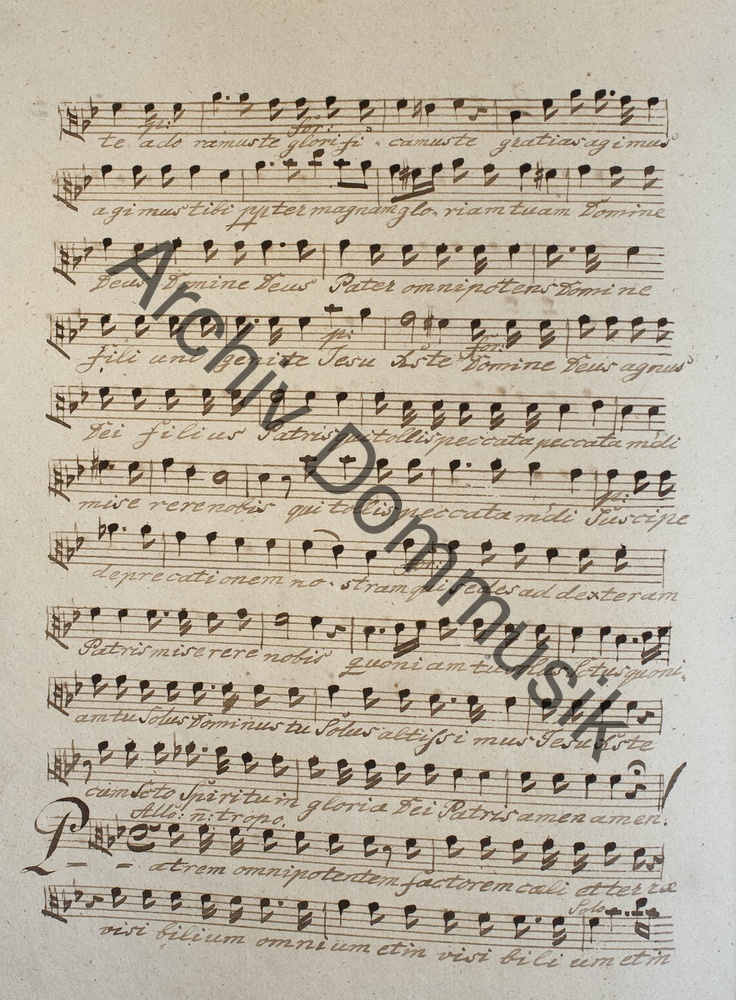 pi: for:
te ado ramuste glorifi - camuste gratias agimus
agimus tibi ppter magnam glo. riam tuam Domine
Deus Domine Deus Pater omnipotens Domine
pi: for:
fili uni genite Jesu Xste Domine Deus agnus
Dei filius Patris qui tollis peccata peccata mdi
pi:
mise rere nobis qui tollis peccata mdi Suscipe
for:
deprecationem no. stram qui sedes ad dexteram
Patris miserere nobis quoniam tu solus Sctus quoni-
am tu Solus Dominus tu Solus altissimus Jesu Xste
cum Scto Spiritu in gloria Dei Patris amen amen.
Allo: n: tropo.
Patrem omnipotentem factorem cæli et terræ
Solo
visi bilium omnium et in visi bili um et in
Archiv Dommusik